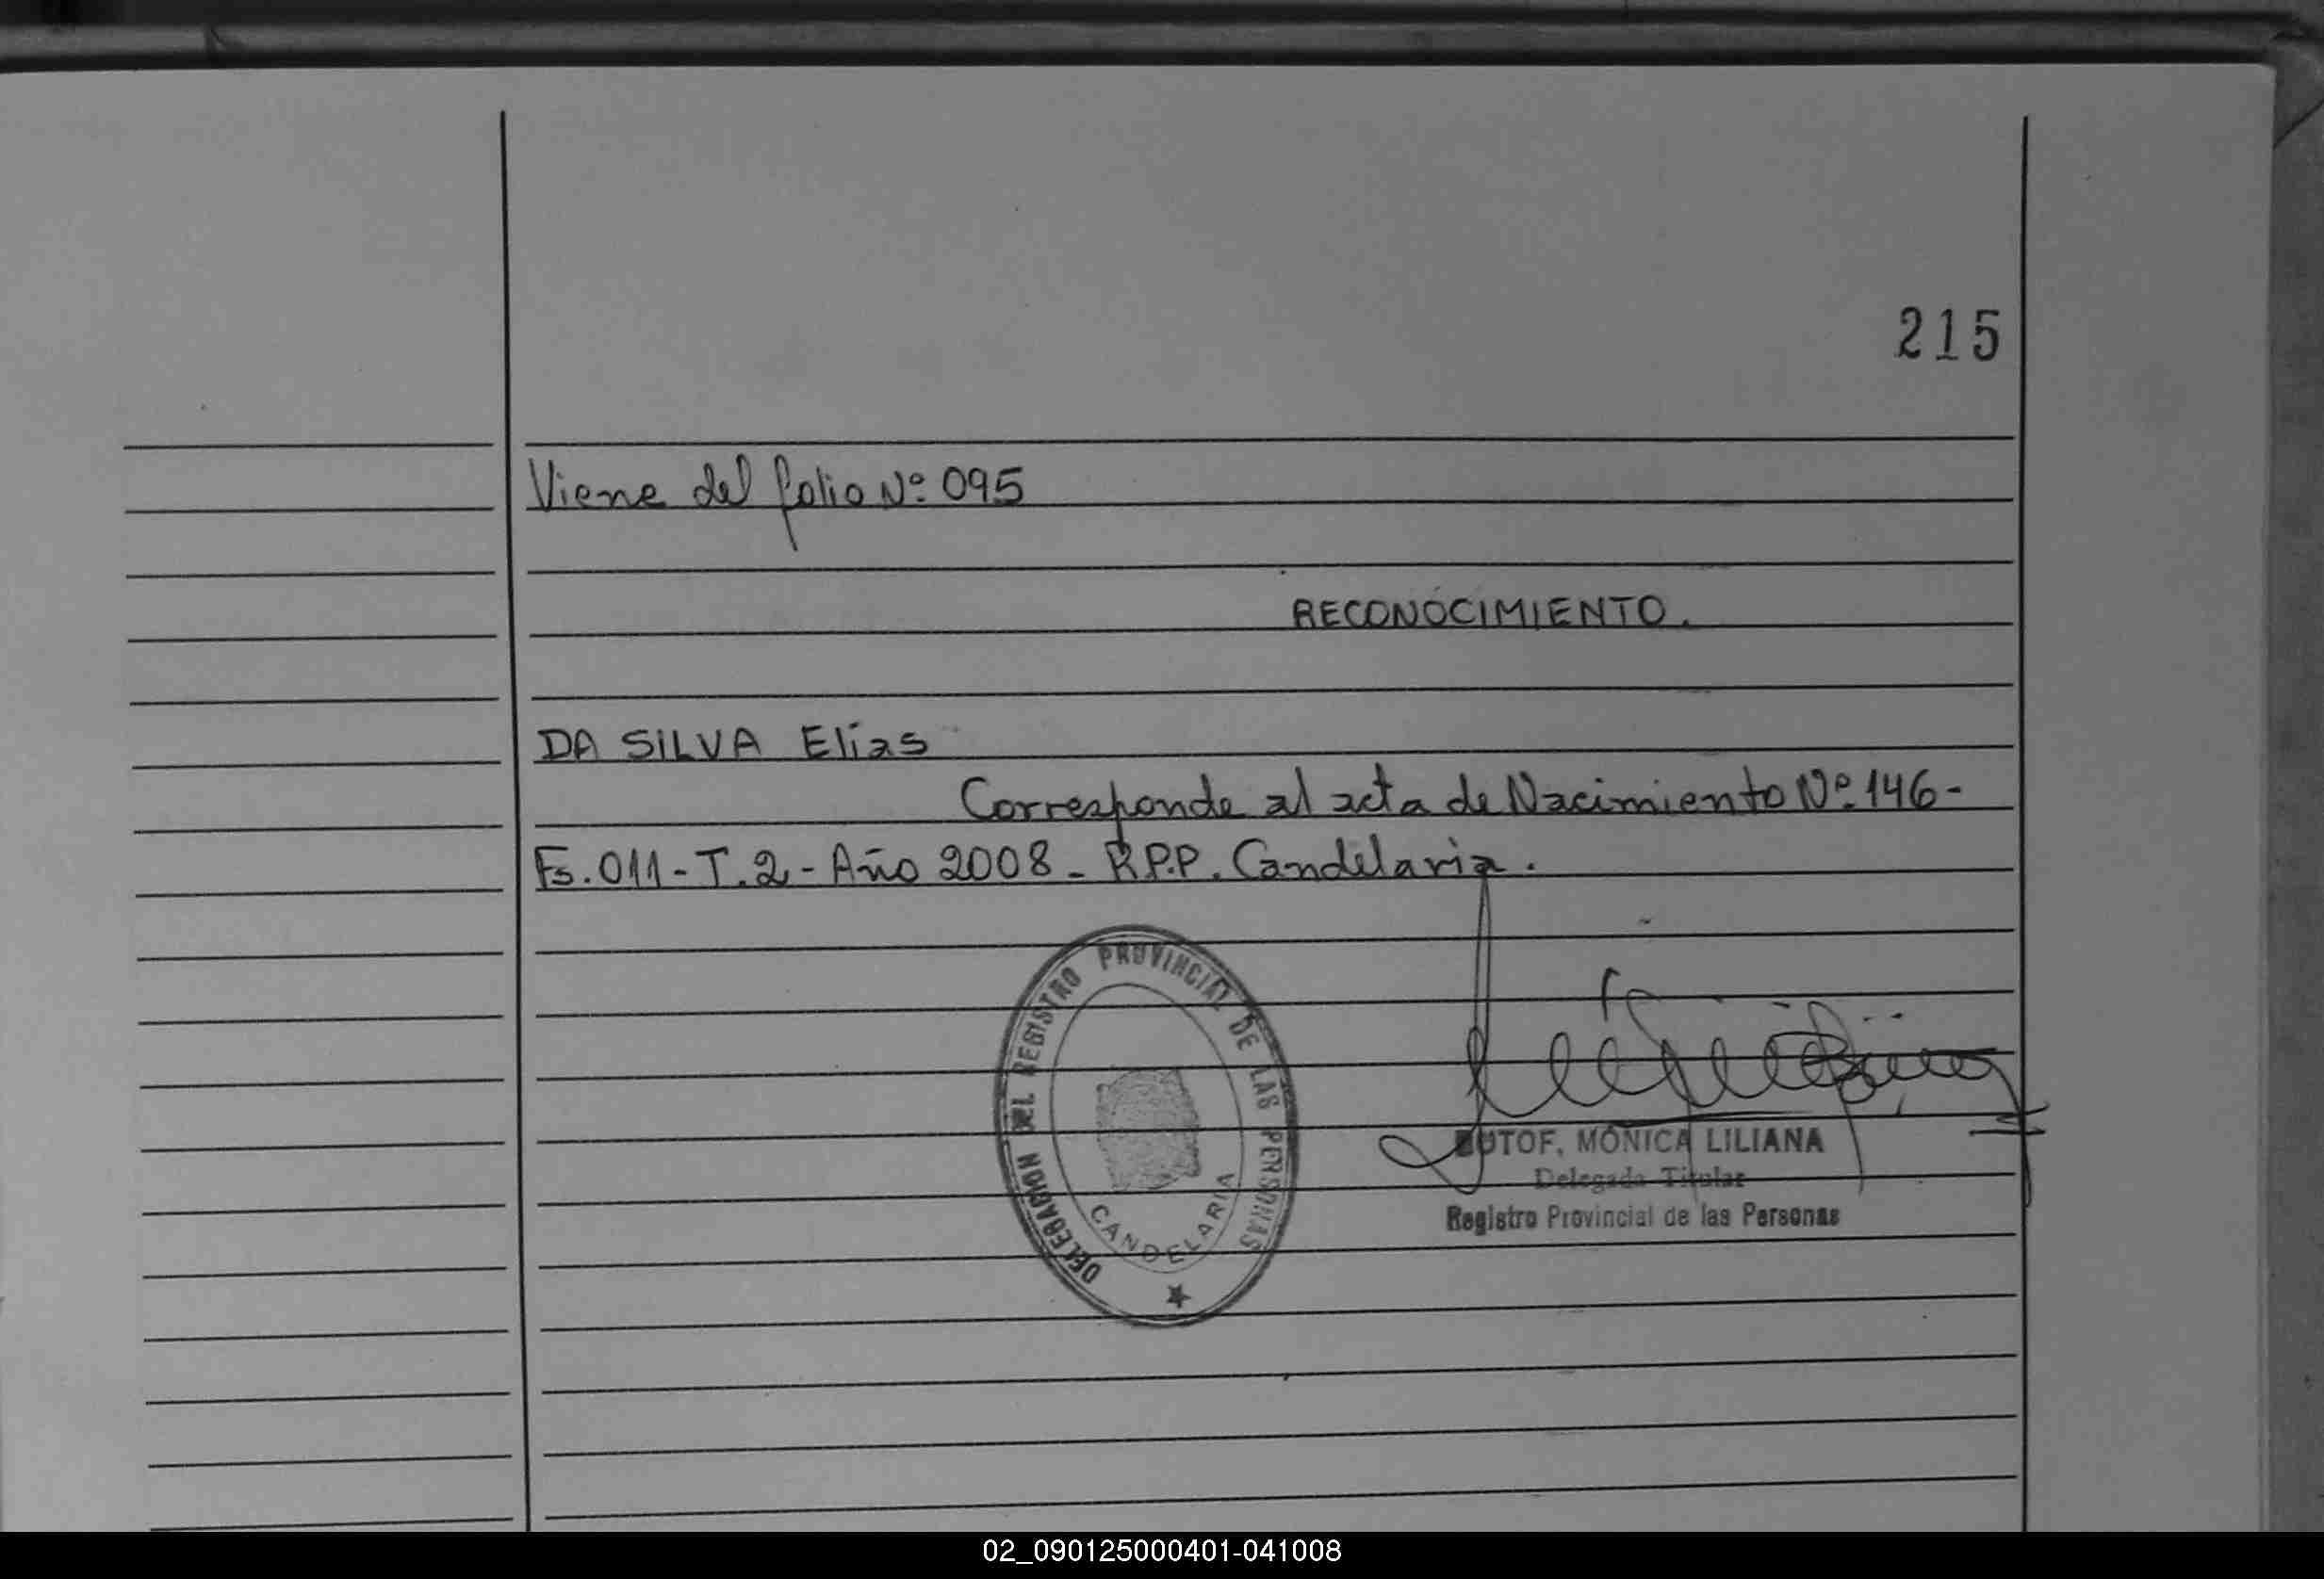 215
Viene del folio Nº 095
RECONOCIMIENTO.
DA SILVA Elías
Corresponde al acta de Nacimiento Nº 146-
Fs. 011 - T. 2 - Año 2008 - R.P.P. Candelaria.
DELEGACION DEL REGISTRO PROVINCIAL DE LAS PERSONAS
CANDELARIA
BUTOF, MÓNICA LILIANA
Delegada Titular
Registro Provincial de las Personas
02_090125000401-041008